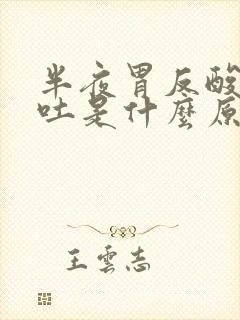 半夜胃反酸
吐是什麼原
王雲志